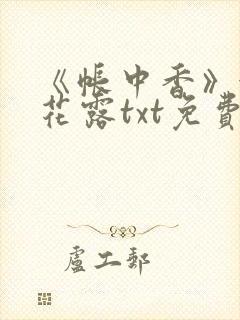 《帳中香》
花露txt免費
盧工郵